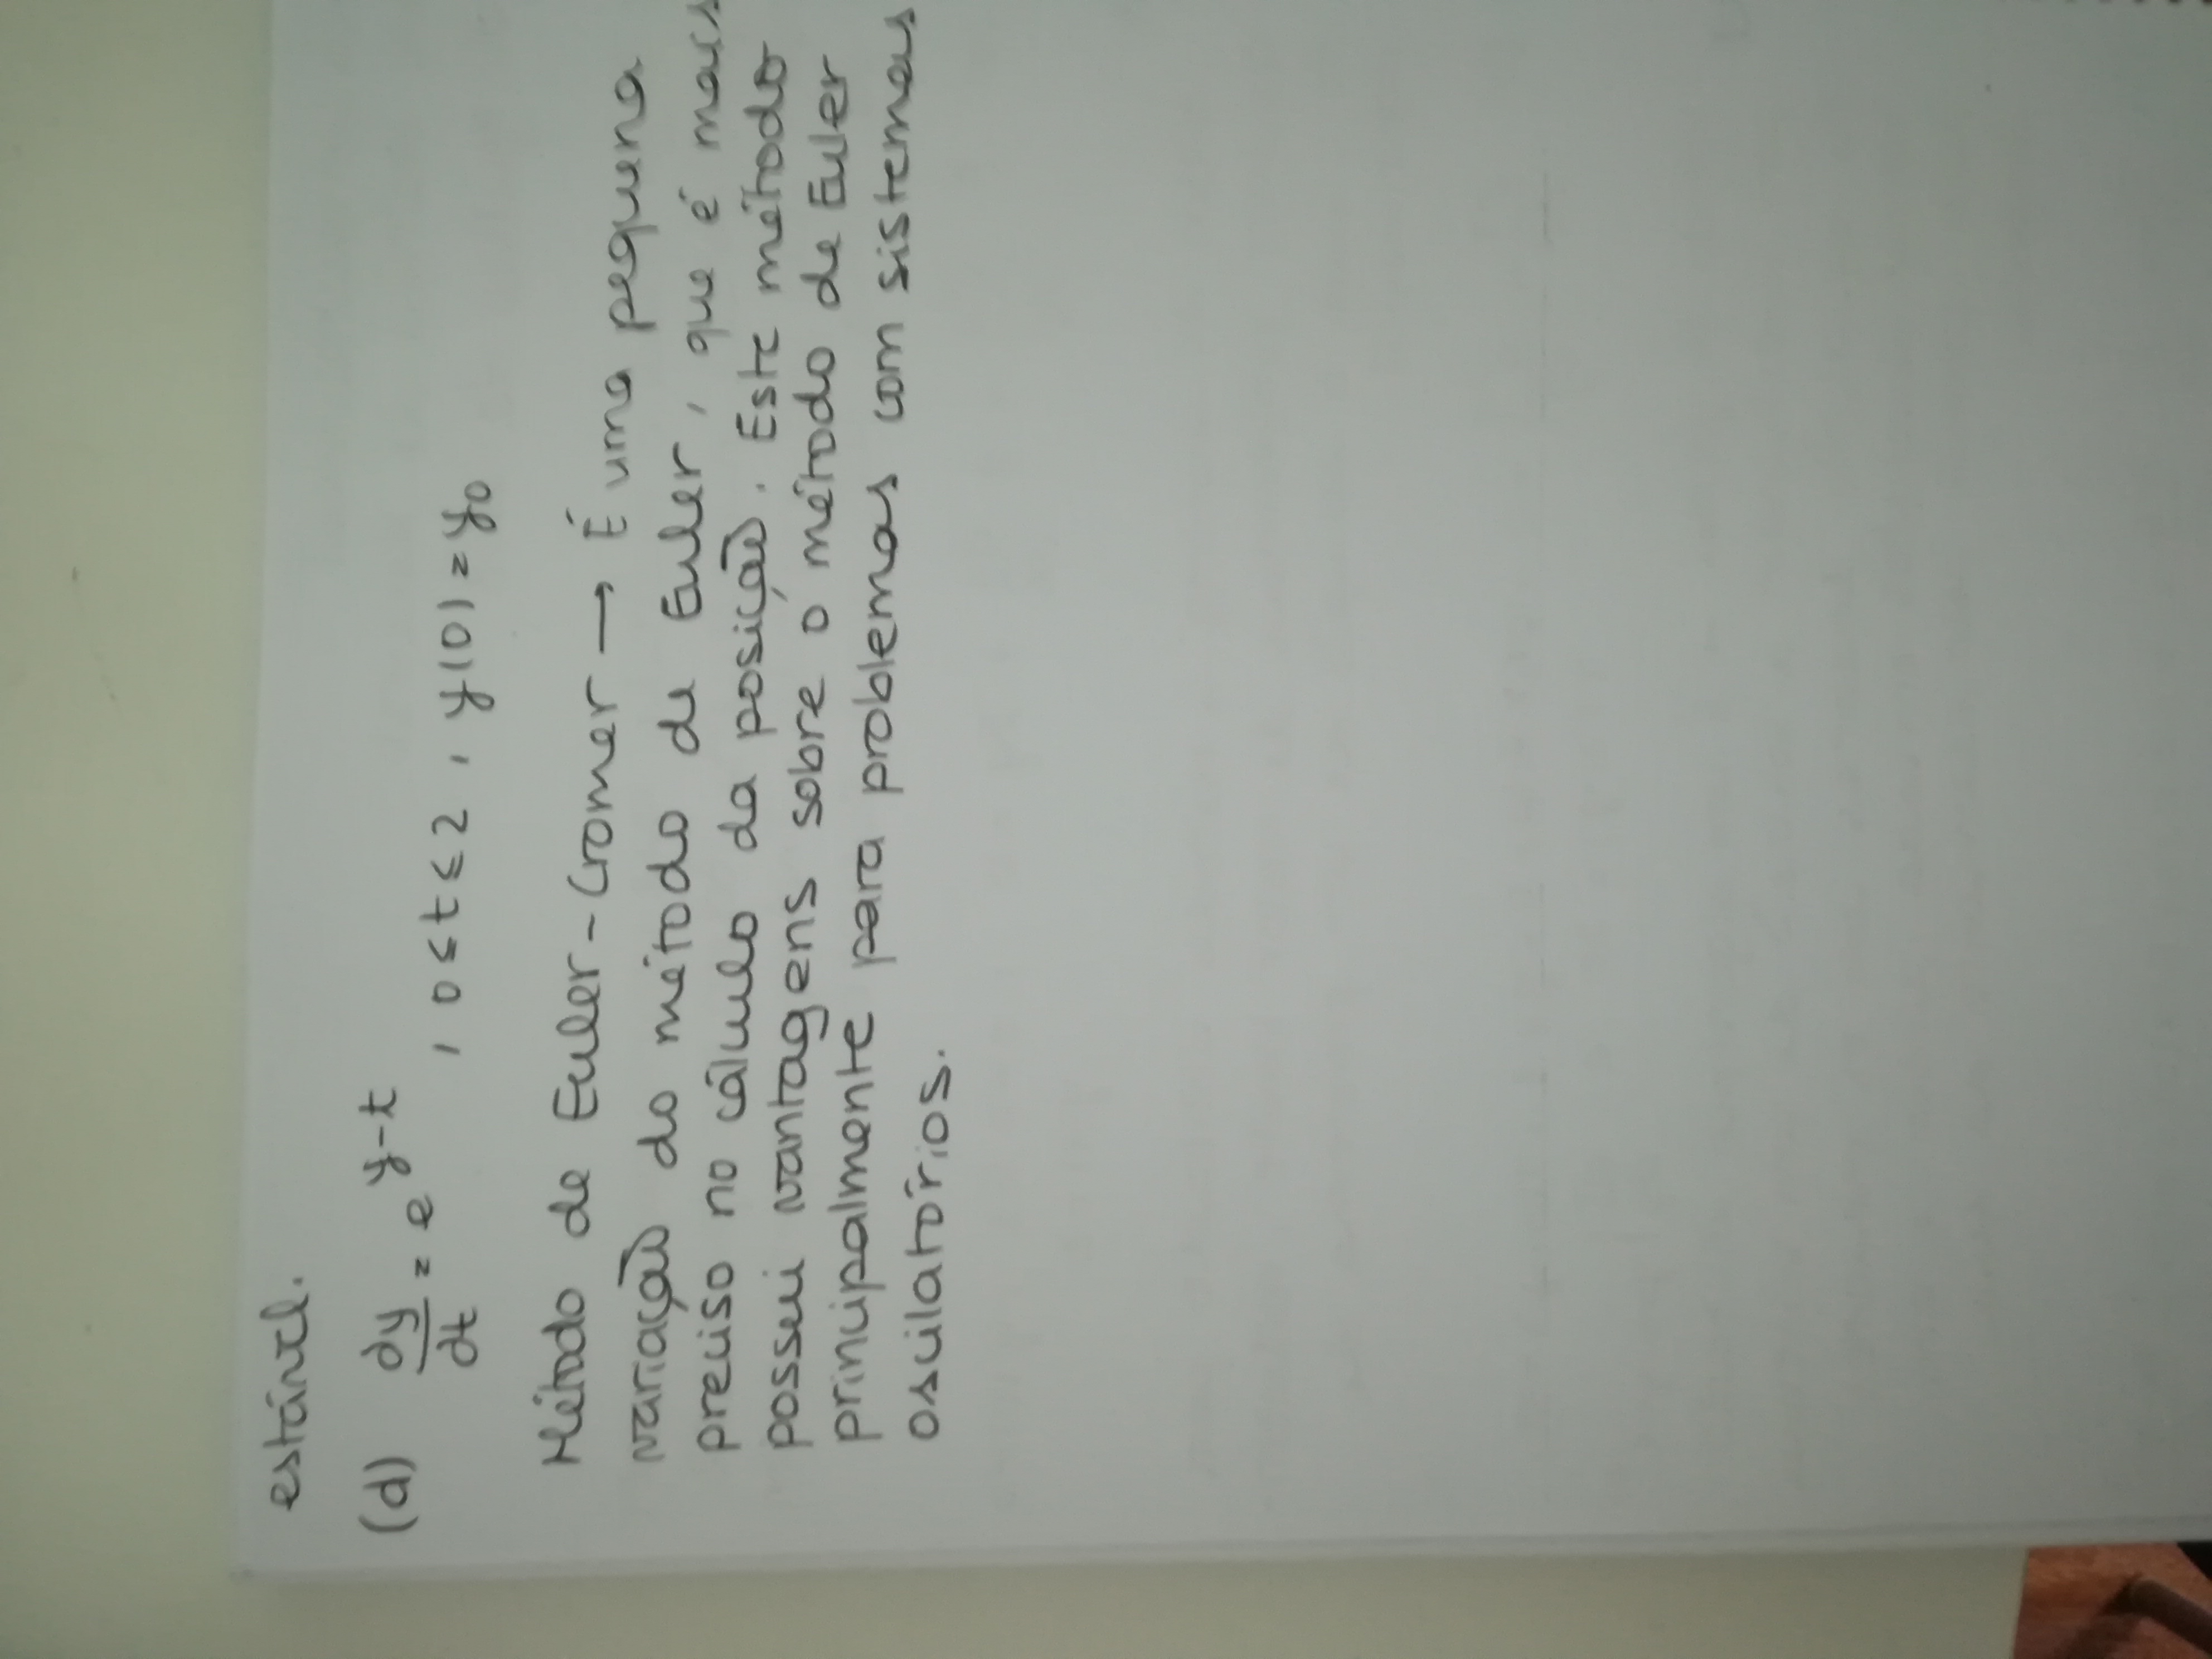 estável.
(d) dy/dt = e^{y-t}, 0 ≤ t ≤ 2, y(0) = y₀
Método de Euler-Cromer → É uma pequena
variação do método de Euler, que é mais
preciso no cálculo da posição. Este método
possui vantagens sobre o método de Euler
principalmente para problemas com sistemas
oscilatórios.